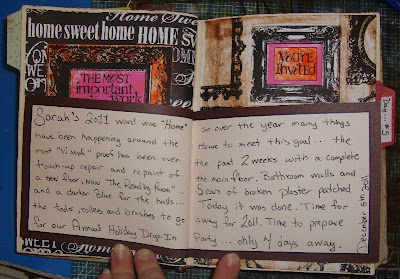 Home Sweet
home sweet home HOME SWEET
THE MOST
important
work
You're
Invited
Dec. #5
Sarah's 2011 word was "Home"
have been happening around the
most "Visual" proof has been over
touch-up repair and repaint of
a new floor, now "The Reading Room"...
and a darker Blue for the halls....
the tools, rollers and brushes to go
for our Annual Holiday Drop-In
so over the year many things
House to meet this goal... the
the past 2 weeks with a complete
the main floor. Bathroom walls and
5 cans of broken plaster patched
Today it was done. Time for
away for 2011. Time to prepare
Party... only 4 days away.
December 5th 2011